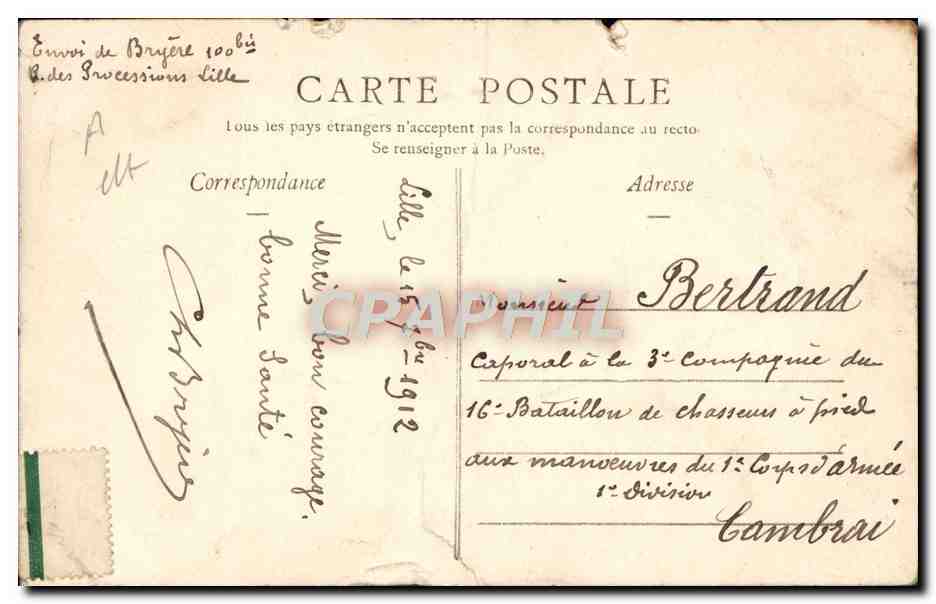 Envoi de Bryère 100bis
R. des Processions Lille
CARTE POSTALE
Tous les pays étrangers n'acceptent pas la correspondance au recto.
Se renseigner à la Poste.
Correspondance
Adresse
Lille, le 15 7bre 1912
Merci, bon courage.
bonne santé
Ch Bryère
Monsieur Bertrand
Caporal à la 3e Compagnie du
16e Bataillon de chasseurs à pied
aux manoeuvres du 1e Corps d'armée
1e Division
Cambrai
CPAPHIL